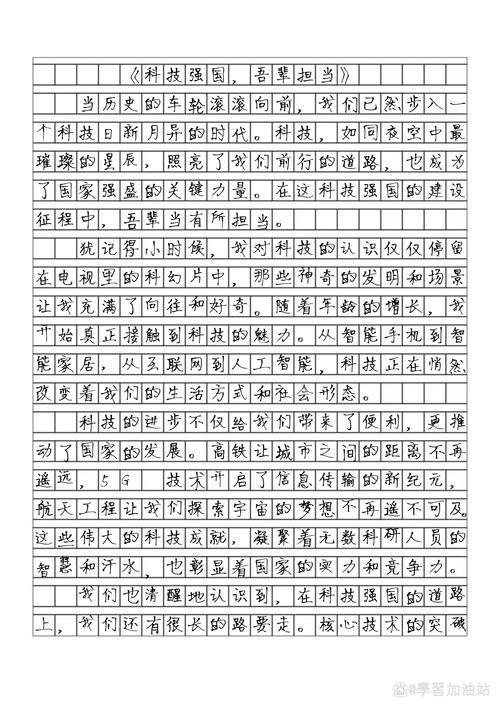 《科技强国，吾辈担当》
当历史的车轮滚滚向前，我们已然步入一
个科技日新月异的时代。科技，如同夜空中最
璀璨的星辰，照亮了我们前行的道路，也成为
了国家强盛的关键力量。在这科技强国的建设
征程中，吾辈当有所担当。
犹记得小时候，我对科技的认识仅仅停留
在电视里的科幻片中，那些神奇的发明和场景
让我充满了向往和好奇。随着年龄的增长，我
开始真正接触到科技的魅力。从智能手机到智
能家居，从互联网到人工智能，科技正在悄然
改变着我们的生活方式和社会形态。
科技的进步不仅给我们带来了便利，更推
动了国家的发展。高铁让城市之间的距离不再
遥远，5G 技术开启了信息传输的新纪元，
航天工程让我们探索宇宙的梦想不再遥不可及。
这些伟大的科技成就，凝聚着无数科研人员的
智慧和汗水，也彰显着国家的实力和竞争力。
我们也清醒地认识到，在科技强国的道路
上，我们还有很长的路要走。核心技术的突破
@學習加油站